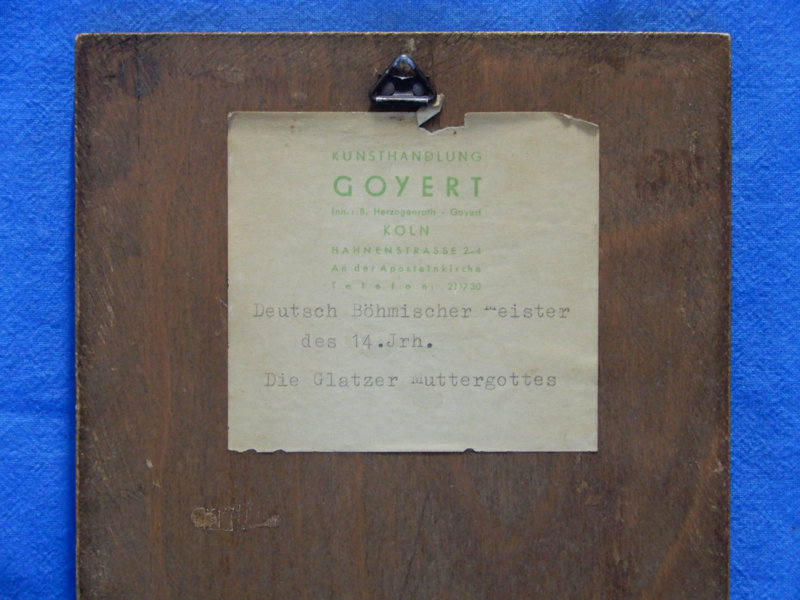 KUNSTHANDLUNG
GOYERT
Inh.: B. Herzogenrath - Goyert
KÖLN
HAHNENSTRASSE 2-4
An der Apostelnkirche
Telefon: 211730
Deutsch Böhmischer Meister
des 14.Jrh.
Die Glatzer Muttergottes